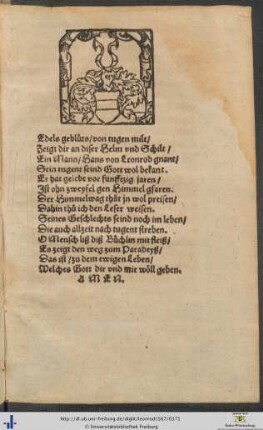 Edels geblüts/von tugen můt/
Zeigt dir an diser Helm vnd Schilt/
Ein Mann/Hans von Leonrod gnant/
Sein tugent seind Gott wol bekant.
Er hat gelebt vor fünffzig jaren/
Ist ohn zweyfel gen Himmel gfaren.
Der Himmelwag thůt jn wol preisen/
Dahin thů ich den Leser weisen.
Seines Geschlechts seind noch im leben/
Die auch allzeit nach tugent streben.
O Mensch liß diß Büchlin mit fleiß/
Es zeigt den weg zum Paradeyß/
Das ist/zu dem ewigen Leben/
Welches Gott dir vnd mir wöll geben.
A M E N.
http://dl.ub.uni-freiburg.de/diglit/leonrod1567/0171
© Universitätsbibliothek Freiburg
Baden-Württemberg